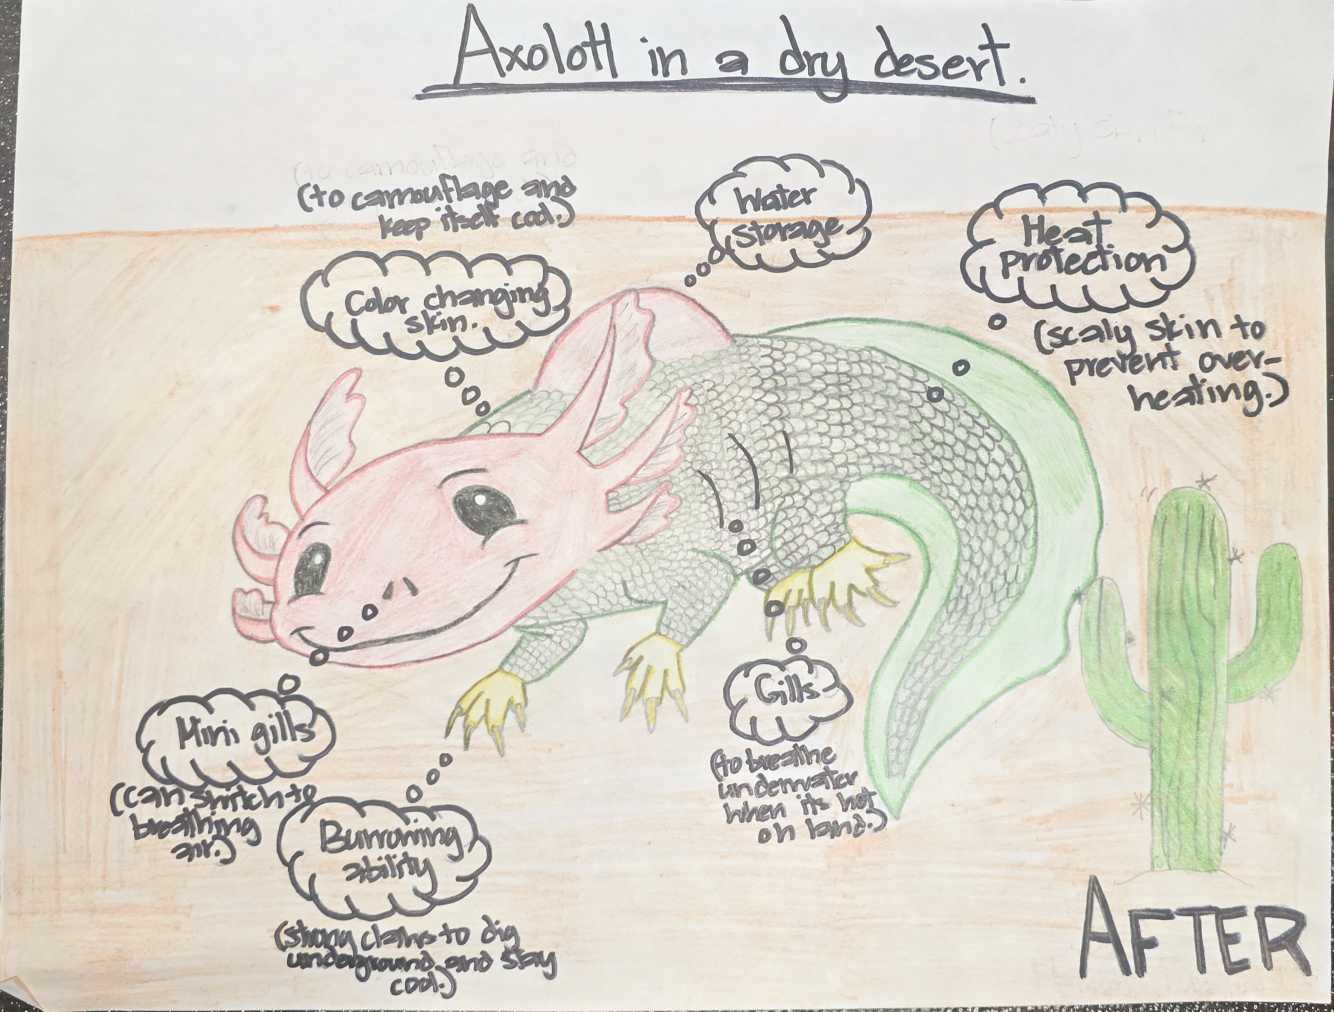 Axolotl in a dry desert.
(to camouflage and
keep itself cool.)
Color changing
skin.
Water
storage
Heat
protection
(scaly skin to
prevent over-
heating.)
Mini gills
(can switch to
breathing
air.)
Burrowing
ability
(strong claws to dig
underground and stay
cool.)
Gills
(to breathe
underwater
when its hot
on land.)
AFTER